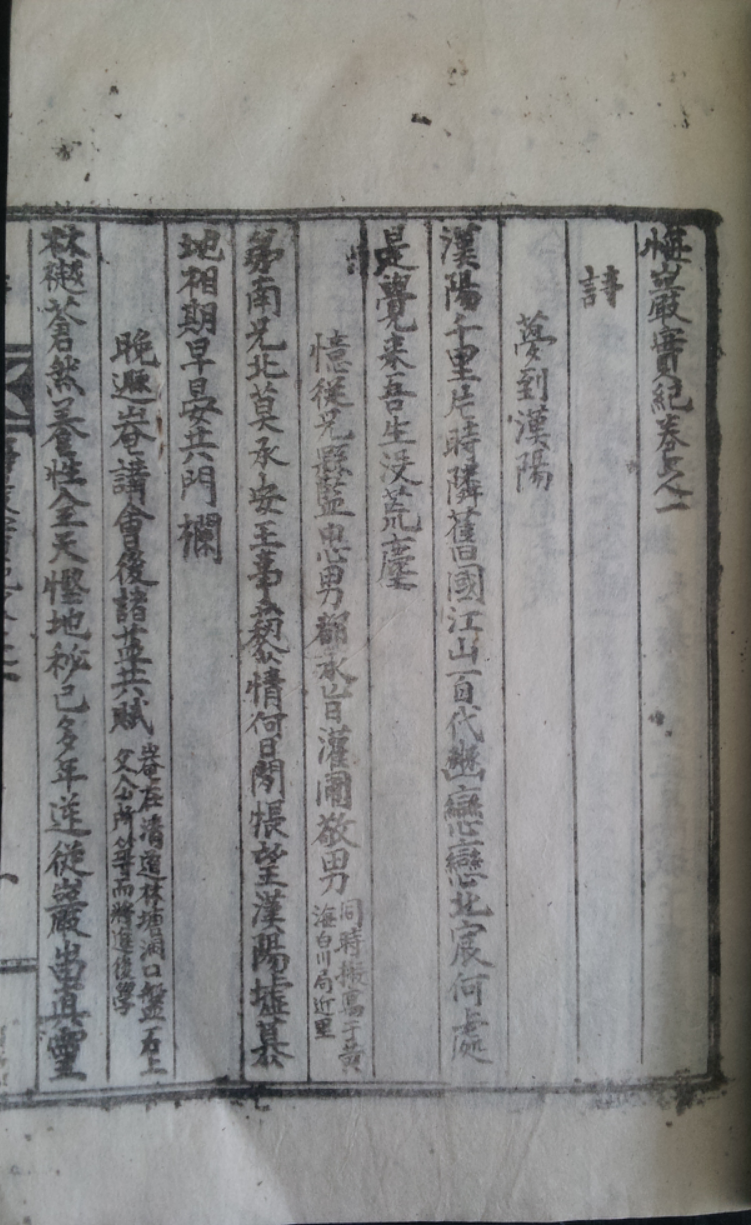 悔巖實紀卷之一
詩
夢到漢陽
漢陽千里片時隣舊國江山百代幽戀戀北宸何處
是覺来吾生沒荒塵
憶從兄縣監忠男都承旨灌圃敬男
同時搬寓于黄
海白川局近里
弟南兄北莫承安王事叙情何日閒悵望漢陽墟墓
地相期早晏共門欄
晩遯菴講會後諸益共賦
菴在清道林塘洞口盤石上
丈人山所築而將進後學
林樾蒼然養性全天慳地秘已多年逆從巖出真靈